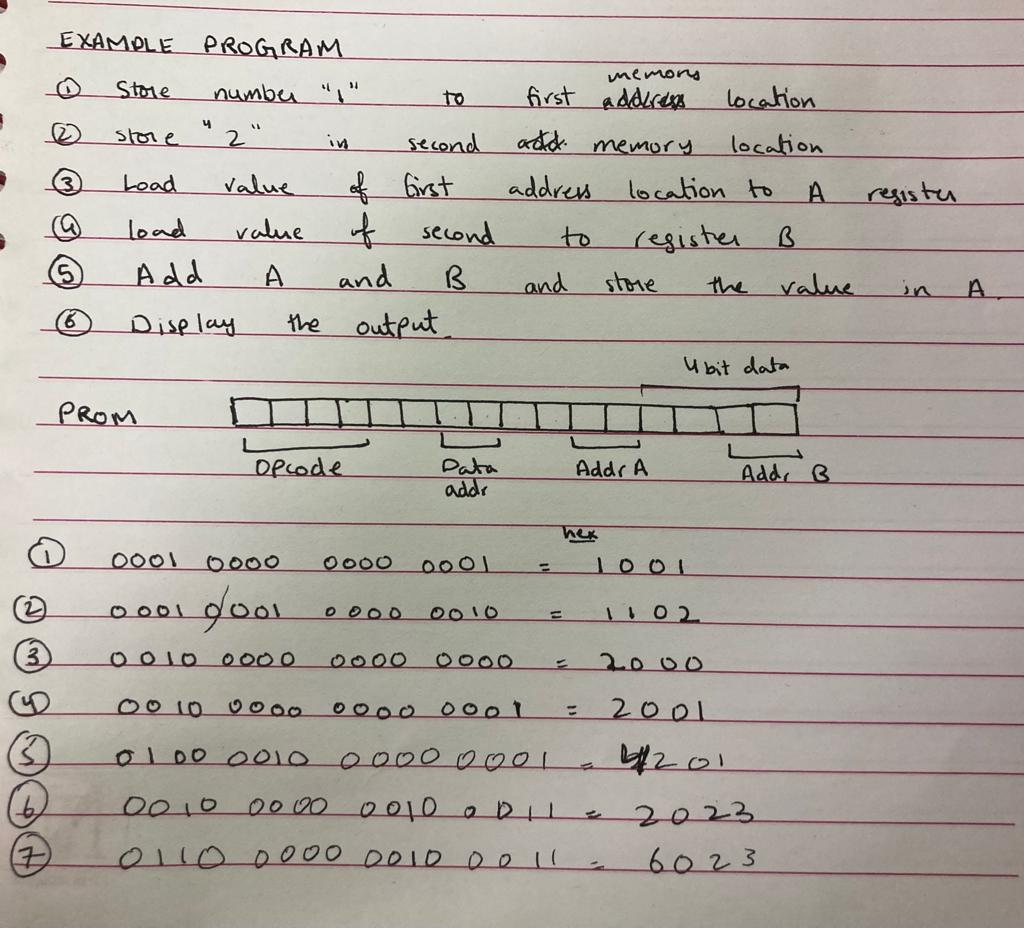 EXAMPLE PROGRAM
① Store number "1" to first address memory location
② store "2" in second add. memory location
③ Load value of first address location to A register
④ load value of second to register B
⑤ Add A and B and store the value in A.
⑥ Display the output.
4 bit data
PROM
Opcode Data addr Addr A Addr B
hex
① 0001 0000 0000 0001 = 1001
② 0001 0001 0000 0010 = 1102
③ 0010 0000 0000 0000 = 2000
④ 0010 0000 0000 0001 = 2001
⑤ 0100 0010 0000 0001 = 4201
⑥ 0010 0000 0010 0011 = 2023
⑦ 0110 0000 0010 0011 = 6023